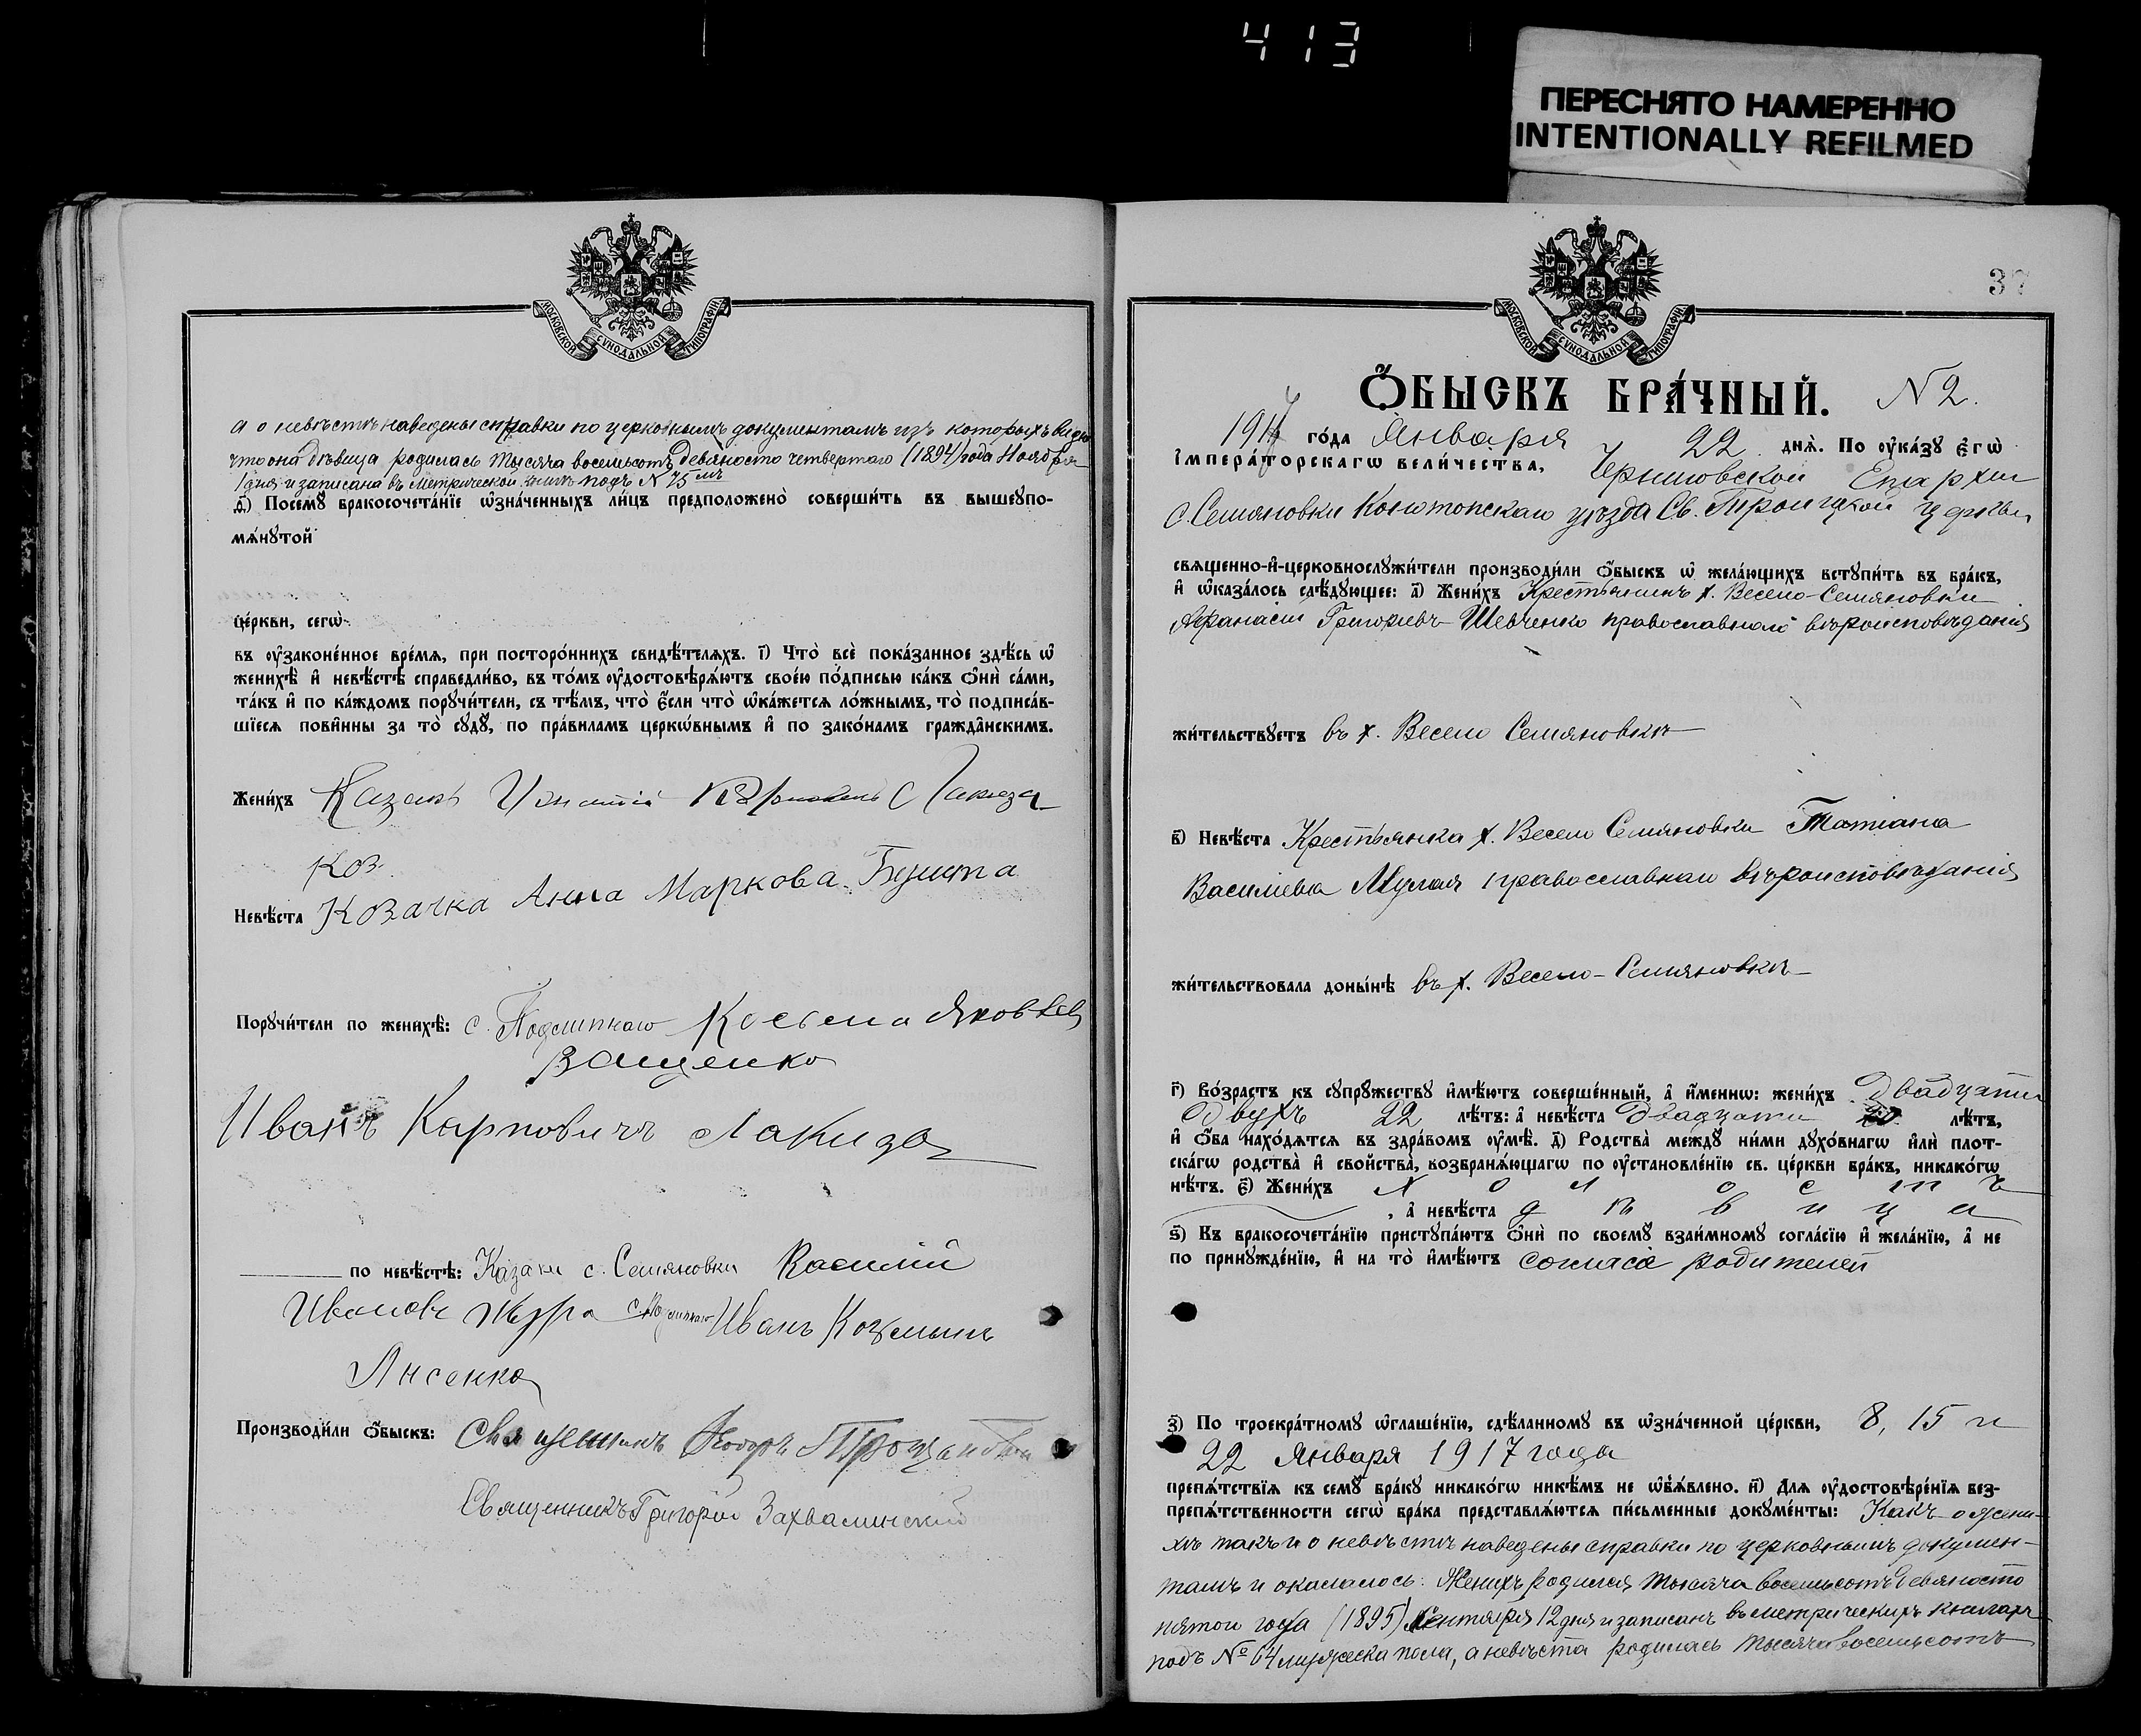 413
ПЕРЕСНЯТО НАМЕРЕННО
INTENTIONALLY REFILMED
МОСКОВСКОЙ СѴНОДАЛЬНОЙ ТИПОГРАФІИ
а о невѣстѣ наведены справки по церковнымъ документамъ изъ которыхъ видно
что она дѣвица родилась тысяча восемьсотъ девяносто четвертаго (1894) года Ноября
1 дня и записана въ метрической книгѣ подъ N 75
Посемꙋ̀ бракосочета́нїе ѡ҆зна́ченныхъ ли́цъ предположено̀ соверши́ть въ вышеꙋпо-
мѧ́нꙋтой
це́ркви, сегѡ̀
въ ᲂу҆зако́ненное вре́мѧ, при посторо́ннихъ свидѣ́телѧхъ. і҃) Что̀ всѐ пока́занное здѣ́сь ѡ҆
женихѣ̀ и҆ невѣ́стѣ справедли́во, въ то́мъ ᲂу҆достовѣрѧ́ютъ свое́ю по́дписью ка́къ ѻ҆нѝ са́ми,
та́къ и҆ по ка́ждомъ порꙋчи́тели, съ тѣ́мъ, что̀ є҆́сли что̀ ѡ҆ка́жетсѧ ло́жнымъ, то̀ подписа́в-
шїесѧ пови́нны за то̀ сꙋдꙋ̀, по пра́виламъ церкѡ́внымъ и҆ по зако́намъ гражда́нскимъ.
Жени́хъ Казакъ Игнатій Карповъ Лакиза
Коз
Невѣ́ста Козачка Анна Маркова
Порꙋчи́тели по женихѣ̀: с. Подлипнаго Косьма Яковлев
Ващенко
Иванъ Карповичъ Лакиза
по невѣ́стѣ: Казаки с. Семяновки Василій
Ивановъ Жура с. Подлипнаго Иванъ Козьминъ
Лисенко
Производи́ли ѻ҆́быскъ: Священникъ Ѳеодоръ
Священникъ Григорій Захвалинскій
МОСКОВСКОЙ СѴНОДАЛЬНОЙ ТИПОГРАФІИ
37
Ѻ҆́БЫСКЪ БРА́ЧНЫЙ. N 2.
1917 го́да Января 22 днѧ̀. По ᲂу҆ка́зꙋ Є҆гѡ̀
І҆мпера́торскагѡ вели́чества, Черниговской Епархіи
с. Семяновки Конотопскаго уѣзда Св. Троицкой церкви
свѧще́нно-и҆-церковнослꙋжи́тели производи́ли ѻ҆́быскъ ѡ҆ жела́ющихъ встꙋпи́ть въ бра́къ,
и҆ ѡ҆каза́лось слѣ́дꙋющее: а҃) Жени́хъ Крестьянинъ х. Весело-Семяновки
Афанасій Григорьевъ Шевченко православнаго вѣроисповѣданія
жи́тельствꙋетъ въ х. Весело Семяновкѣ
в҃) Невѣ́ста Крестьянка х. Весело Семяновки Татіана
Василіева православнаго вѣроисповѣданія
жи́тельствовала донынѣ въ х. Весело-Семяновкѣ
г҃) Во́зрастъ къ сꙋпрꙋ́жествꙋ и҆мѣ́ютъ соверше́нный, а҆ и҆́менно: жени́хъ двадцати
двухъ 22 лѣ́тъ: а҆ невѣ́ста двадцати 20 лѣ́тъ,
и҆ ѻ҆́ба нахо́дѧтсѧ въ здра́вомъ ᲂу҆мѣ̀. д҃) Родства̀ междꙋ̀ ни́ми дꙋхо́внагѡ и҆лѝ плот-
ска́гѡ родства̀ и҆ сво́йства, возбранѧ́ющагѡ по ᲂу҆становле́нїю св. це́ркви бра́къ, никако́гѡ
нѣ́тъ. є҃) Жени́хъ холостъ
, а҆ невѣ́ста дѣвица
ѕ҃) Къ бракосочета́нїю пристꙋпа́ютъ ѻ҆нѝ по своемꙋ̀ взаи́мномꙋ согла́сїю и҆ жела́нїю, а҆ не
по принꙋжде́нїю, и҆ на то̀ и҆мѣ́ютъ согласіе родителей
з҃) По троекра́тномꙋ ѡ҆глаше́нїю, сдѣ́ланномꙋ въ ѡ҆зна́ченной це́ркви, 8, 15 и
22 Января 1917 года
препѧ́тствїѧ къ семꙋ̀ бра́кꙋ никако́гѡ никѣ́мъ не ѡ҆б̾ѧ́влено. и҃) Длѧ ᲂу҆достовѣре́нїѧ без-
препѧ́тственности сегѡ̀ бра́ка представлѧ́ютсѧ пи́сьменные докꙋме́нты: Какъ о жени-
хѣ такъ и о невѣстѣ наведены справки по церковнымъ докумен-
тамъ и оказалось: Женихъ родился тысяча восемьсотъ девяносто
пятого года (1895) Сентября 12 дня и записанъ въ метрическихъ книгахъ
подъ № 64 мужеска пола, а невѣста родилась тысяча восемьсотъ